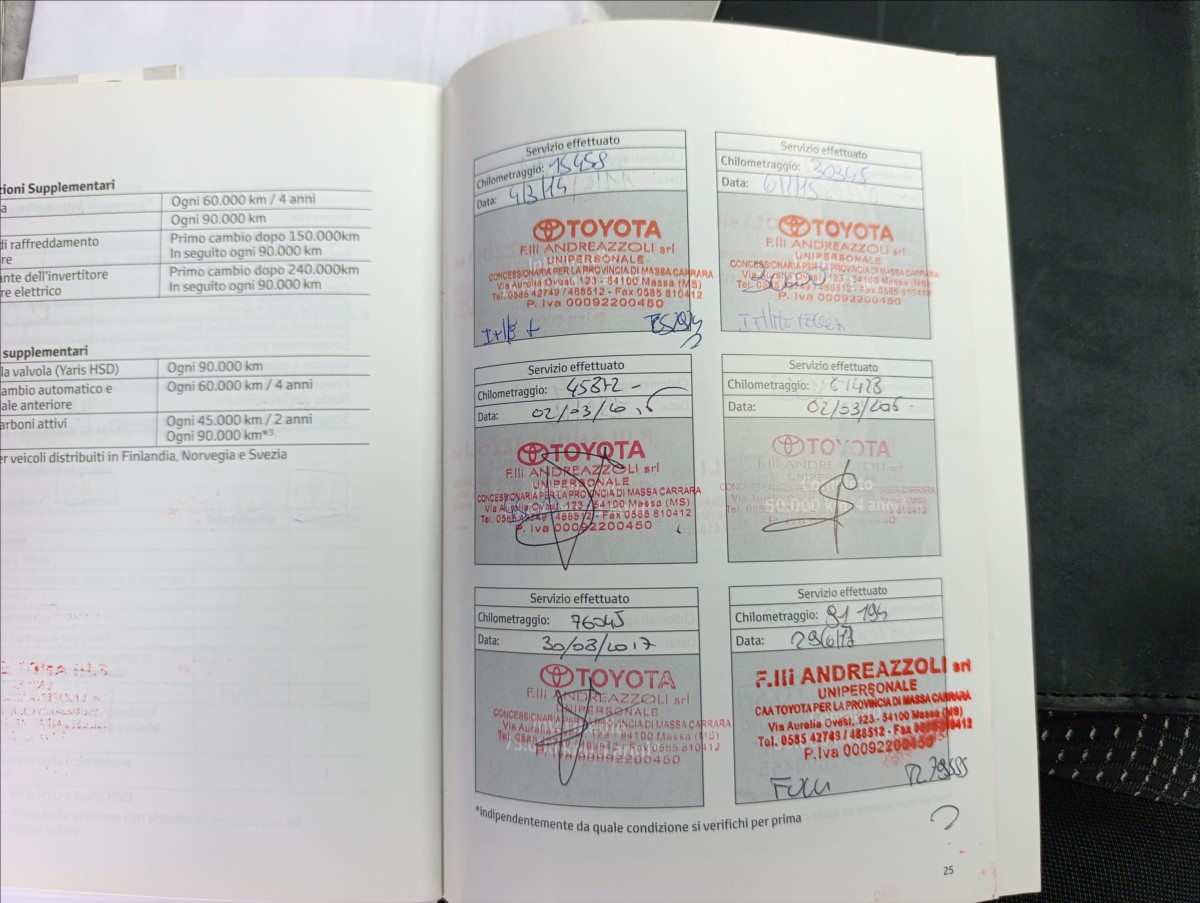 zioni Supplementari
a Ogni 60.000 km / 4 anni
Ogni 90.000 km
di raffreddamento Primo cambio dopo 150.000km
re In seguito ogni 90.000 km
ante dell'invertitore Primo cambio dopo 240.000km
re elettrico In seguito ogni 90.000 km
supplementari
la valvola (Yaris HSD) Ogni 90.000 km
ambio automatico e Ogni 60.000 km / 4 anni
ale anteriore
arboni attivi Ogni 45.000 km / 2 anni
Ogni 90.000 km*3
er veicoli distribuiti in Finlandia, Norvegia e Svezia
Servizio effettuato
Chilometraggio: 15458
Data: 4/3/14
TOYOTA
F.lli ANDREAZZOLI srl
UNIPERSONALE
CONCESSIONARIA PER LA PROVINCIA DI MASSA CARRARA
Via Aurelia Ovest, 123 - 54100 Massa (MS)
Tel. 0585 42749 / 488512 - Fax 0585 810412
P. Iva 00092200450
Servizio effettuato
Chilometraggio: 30345
Data:
TOYOTA
F.lli ANDREAZZOLI srl
UNIPERSONALE
CONCESSIONARIA PER LA PROVINCIA DI MASSA CARRARA
Via Aurelia Ovest, 123 - 54100 Massa (MS)
Tel. 0585 42749 / 488512 - Fax 0585 810412
P. Iva 00092200450
Servizio effettuato
Chilometraggio: 45872
Data: 02/03/
TOYOTA
F.lli ANDREAZZOLI srl
UNIPERSONALE
CONCESSIONARIA PER LA PROVINCIA DI MASSA CARRARA
Via Aurelia Ovest, 123 - 54100 Massa (MS)
Tel. 0585 42749 / 488512 - Fax 0585 810412
P. Iva 00092200450
Servizio effettuato
Chilometraggio: 61428
Data: 02/03/
TOYOTA
F.lli ANDREAZZOLI srl
60.000 km / 4 anni
Servizio effettuato
Chilometraggio: 76045
Data: 30/03/2017
TOYOTA
F.lli ANDREAZZOLI srl
UNIPERSONALE
CONCESSIONARIA PER LA PROVINCIA DI MASSA CARRARA
Via Aurelia Ovest, 123 - 54100 Massa (MS)
Tel. 0585 42749 / 488512 - Fax 0585 810412
P. Iva 00092200450
Servizio effettuato
Chilometraggio: 91 194
Data: 29/6/17
F.lli ANDREAZZOLI srl
UNIPERSONALE
CAA TOYOTA PER LA PROVINCIA DI MASSA CARRARA
Via Aurelia Ovest, 123 - 54100 Massa (MS)
Tel. 0585 42749 / 488512 - Fax 0585 810412
P.Iva 00092200450
*indipendentemente da quale condizione si verifichi per prima
25